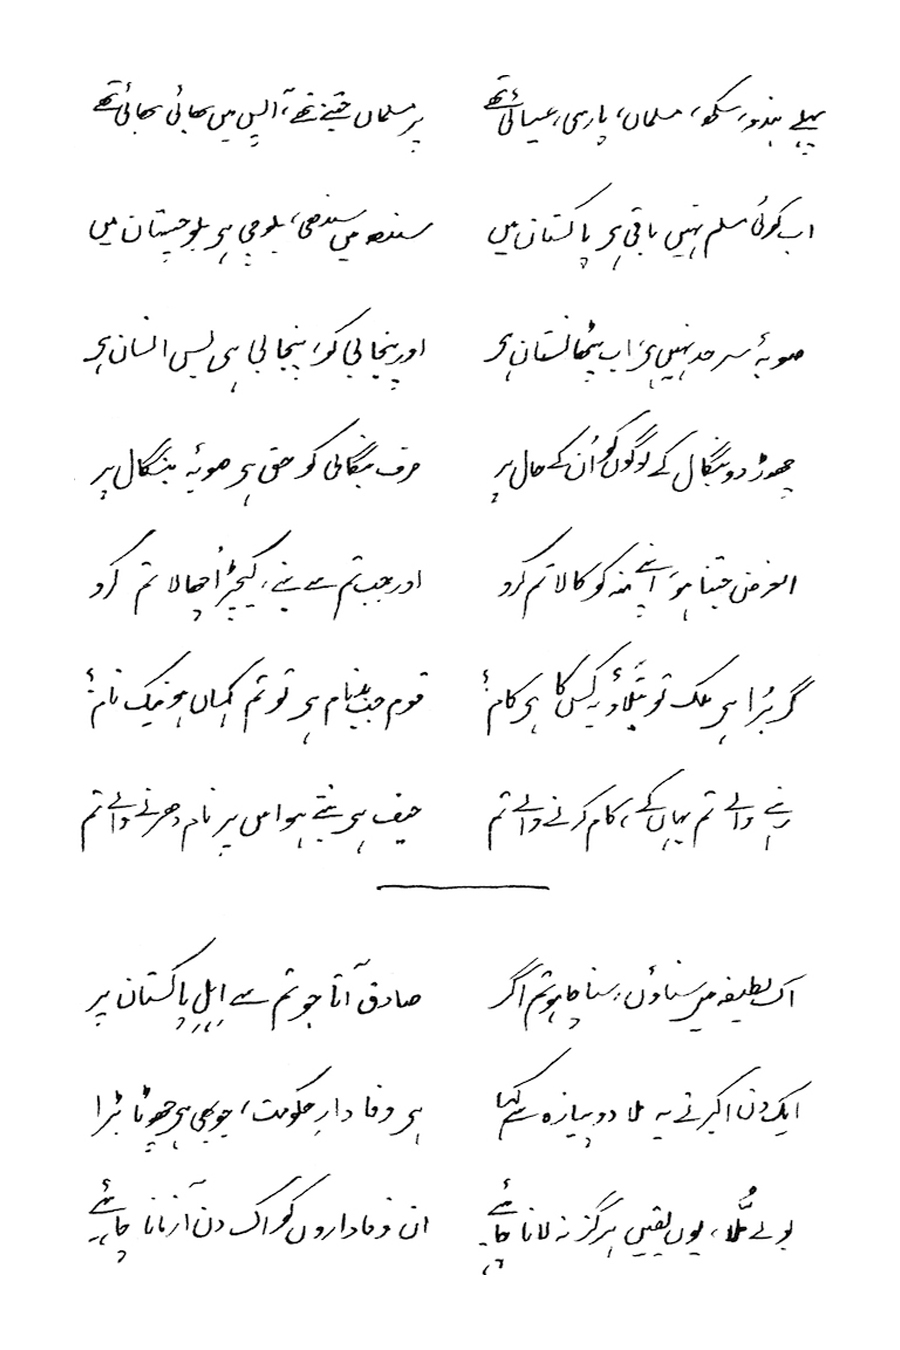 پہلے ہندو، سکھ، مسلماں، پارسی، عیسائی تھے پر مسلماں جتنے تھے، آپس میں بھائی بھائی تھے
اب کوئی مسلم نہیں باقی ہے پاکستان میں سندھ میں سندھی، بلوچی ہے بلوچستان میں
صوبۂ سرحد نہیں ہے، اب پٹھانستان ہے اور پنجابی کو، پنجابی ہی بس انسان ہے
چھوڑ دو بنگال کے لوگوں کو اُن کے حال پر صرف بنگالی کو حق ہے صوبۂ بنگال پر
الغرض جتنا ہو، اپنے منہ کو کالا تم کرو اور جب تم سے بنے، کیچڑ اُچھالا تم کرو
گر بُرا ہے ملک تو بتلاؤ یہ کس کا ہے کام؟ قوم جب بدنام ہے تو تم کہاں ہو نیک نام؟
رہنے والے تم یہاں کے، کام کرنے والے تم حیف ہے بنتے ہو اس پر نام دھرنے والے تم
اک لطیفہ میں سناؤں، سننا چاہو تم اگر صادق آتا جو تم سے اہلِ پاکستان پر
ایک دن اکبر نے یہ ملا دو پیازہ سے کہا ہے وفادارِ حکومت، جو بھی ہے چھوٹا بڑا
بولے مُلّا، یوں یقیں ہرگز نہ لانا چاہئے ان وفاداروں کو اک دن آزمانا چاہئے